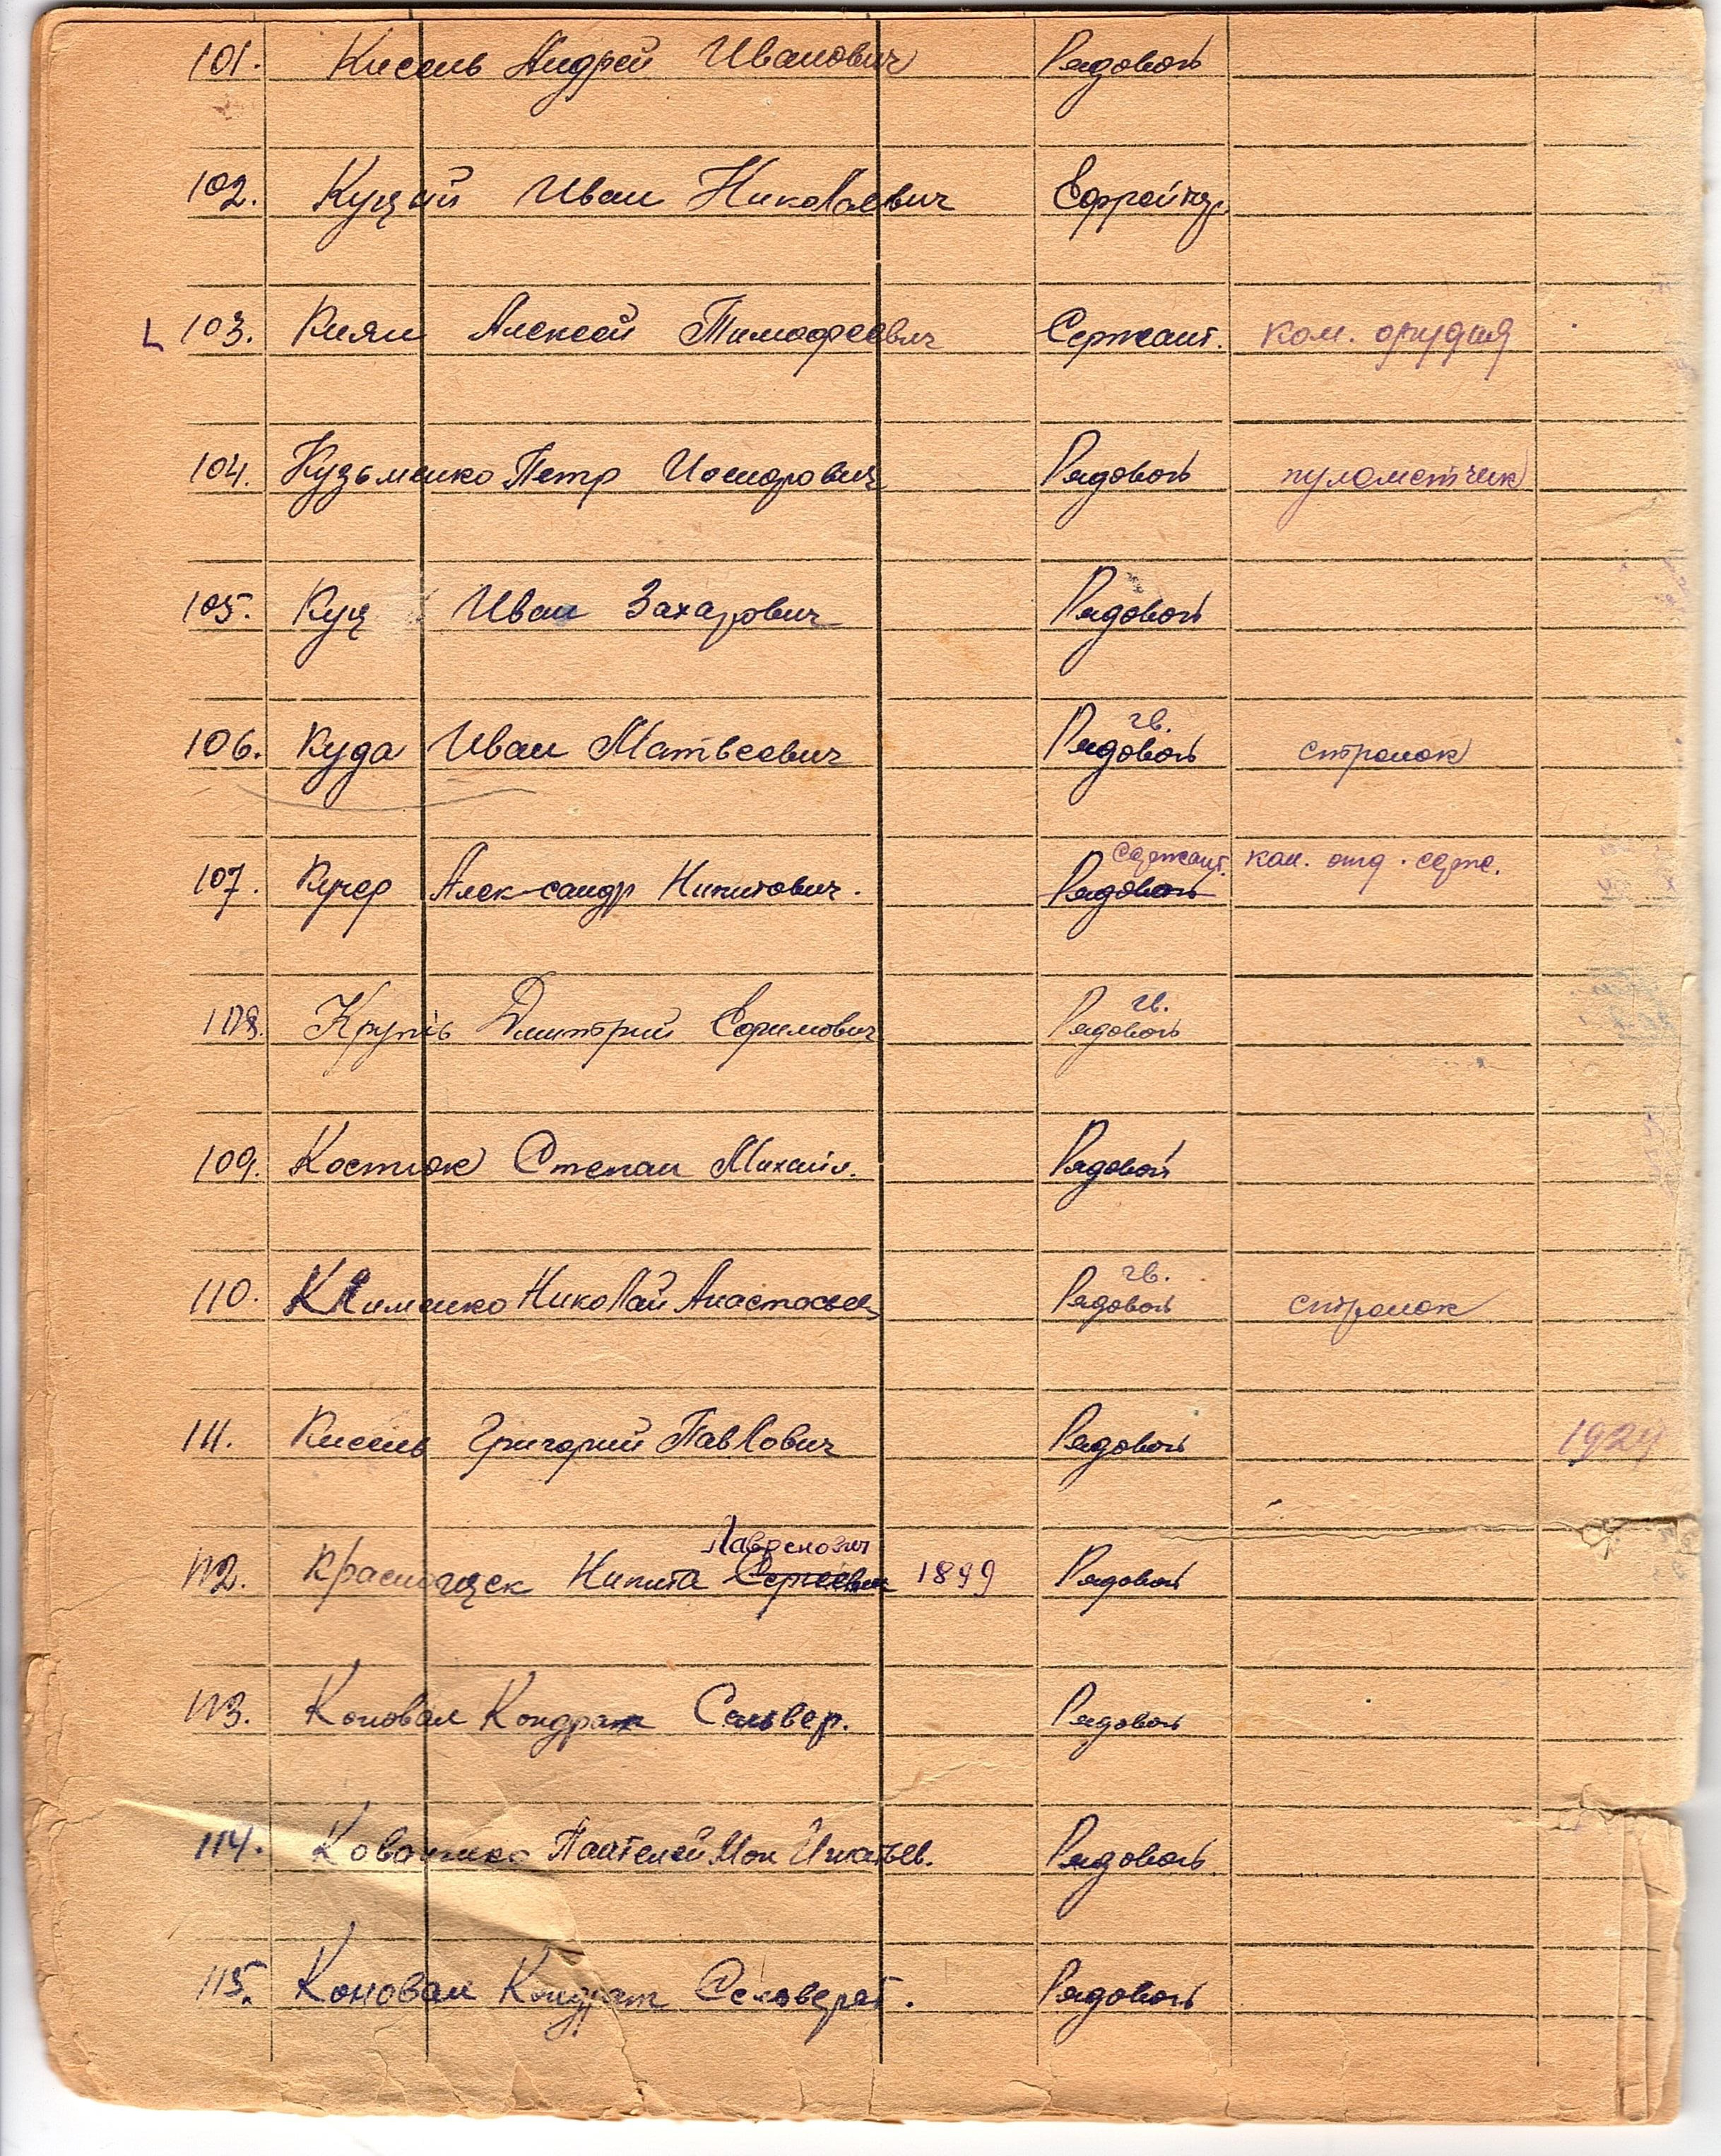 101. Кисель Андрей Иванович Рядовой
102. Куций Иван Николаевич Ефрейтор
103. Киян Алексей Тимофеевич Сержант. ком. орудия
104. Кузьменко Петр Иосифович Рядовой пулеметчик
105. Куц Иван Захарович Рядовой
гв.
106. Куда Иван Матвеевич Рядовой стрелок
сержант. ком. отд. серж.
107. Кучер Александр Никитович. Рядовой
гв.
108. Дмитрий Ефимович Рядовой
109. Костюк Степан Михайл. Рядовой
гв.
110. Клименко Николай Рядовой стрелок
111. Кисель Григорий Павлович Рядовой 1924
Лавренович
112. Никита Сергеевич 1899 Рядовой
113. Коновал Кондрат Рядовой
114. Игнатьев. Рядовой
115. Коновал Кондрат Рядовой